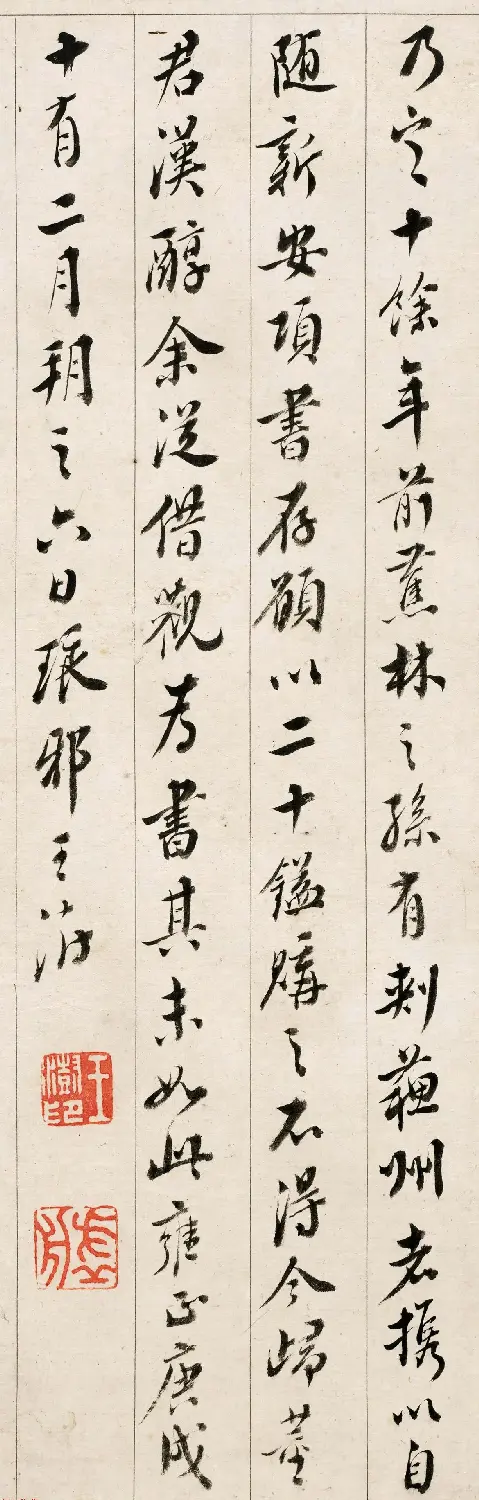 乃定十餘年前蕉林之孫有刺蘇州者攜以自
随新安項書存願以二十鎰購之不得今歸董
君漢醇余從借觀為書其末如此雍正庚戌
十有二月朔之六日琅邪王澍
王澍印
虛舟